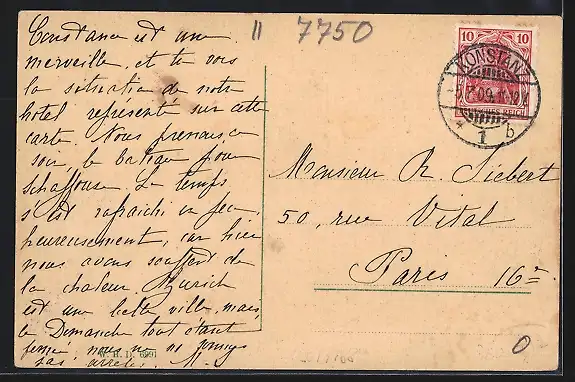 Constance est une
merveille, et tu vois
la situation de notre
hotel représenté sur cette
carte. Nous prenons ce
soir, le bateau pour
Schaffouse. Le temps
s'est rafraichi un peu,
heureusement, car hier
nous avons souffert de
la chaleur. Zurich
est une belle ville, mais
le Dimanche tout étant
fermé, nous ne
pas arrêtés. M.
W. H. D. 6991
11
7750
10 10
DEUTSCHES REICH
KONSTANZ
09
* 1 b
Monsieur R. Siebert
50, rue Vital
Paris 16e
0